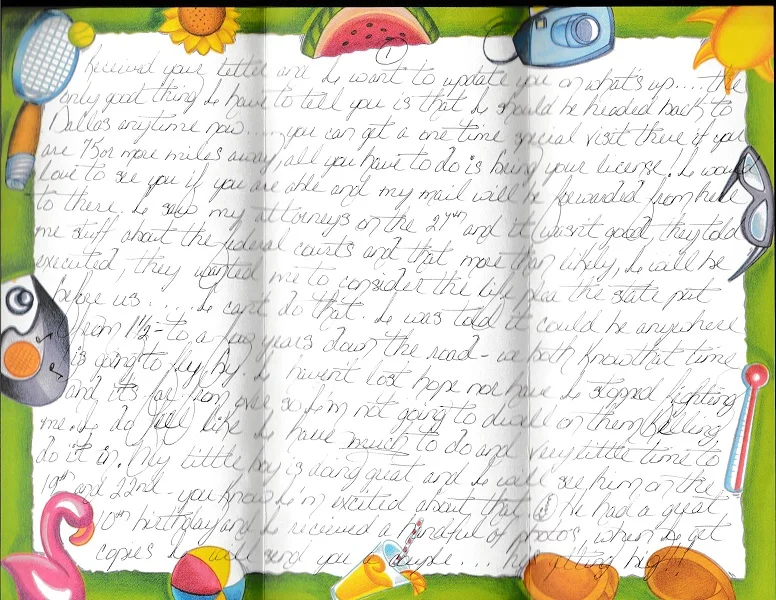 1
Received your letter and I want to update you on what's up.... the
only good thing I have to tell you is that I should be headed back to
Dallas anytime now..... you can get a one time special visit there if you
are 75 or more miles away, all you have to do is bring your license. I would
love to see you if you are able and my mail will be forwarded from here
to there. I saw my attorneys on the 27th and it wasn't good, they told
me stuff about the federal courts and that more than likely, I will be
executed, they wanted me to consider the life plea the state put
before us.... I can't do that. I was told it could be anywhere
from 1½ - to a few years down the road - we both know that time
is going to fly by. I haven't lost hope nor have I stopped fighting
and it's far from over, so I'm not going to dwell on them killing
me. I do feel like I have much to do and very little time to
do it in. My little boy is doing great and I will see him on the
19th and 22nd - you know I'm excited about that! He had a great
10th birthday and I received a handful of photos, when I get
copies I will send you a couple.... he's getting big!!